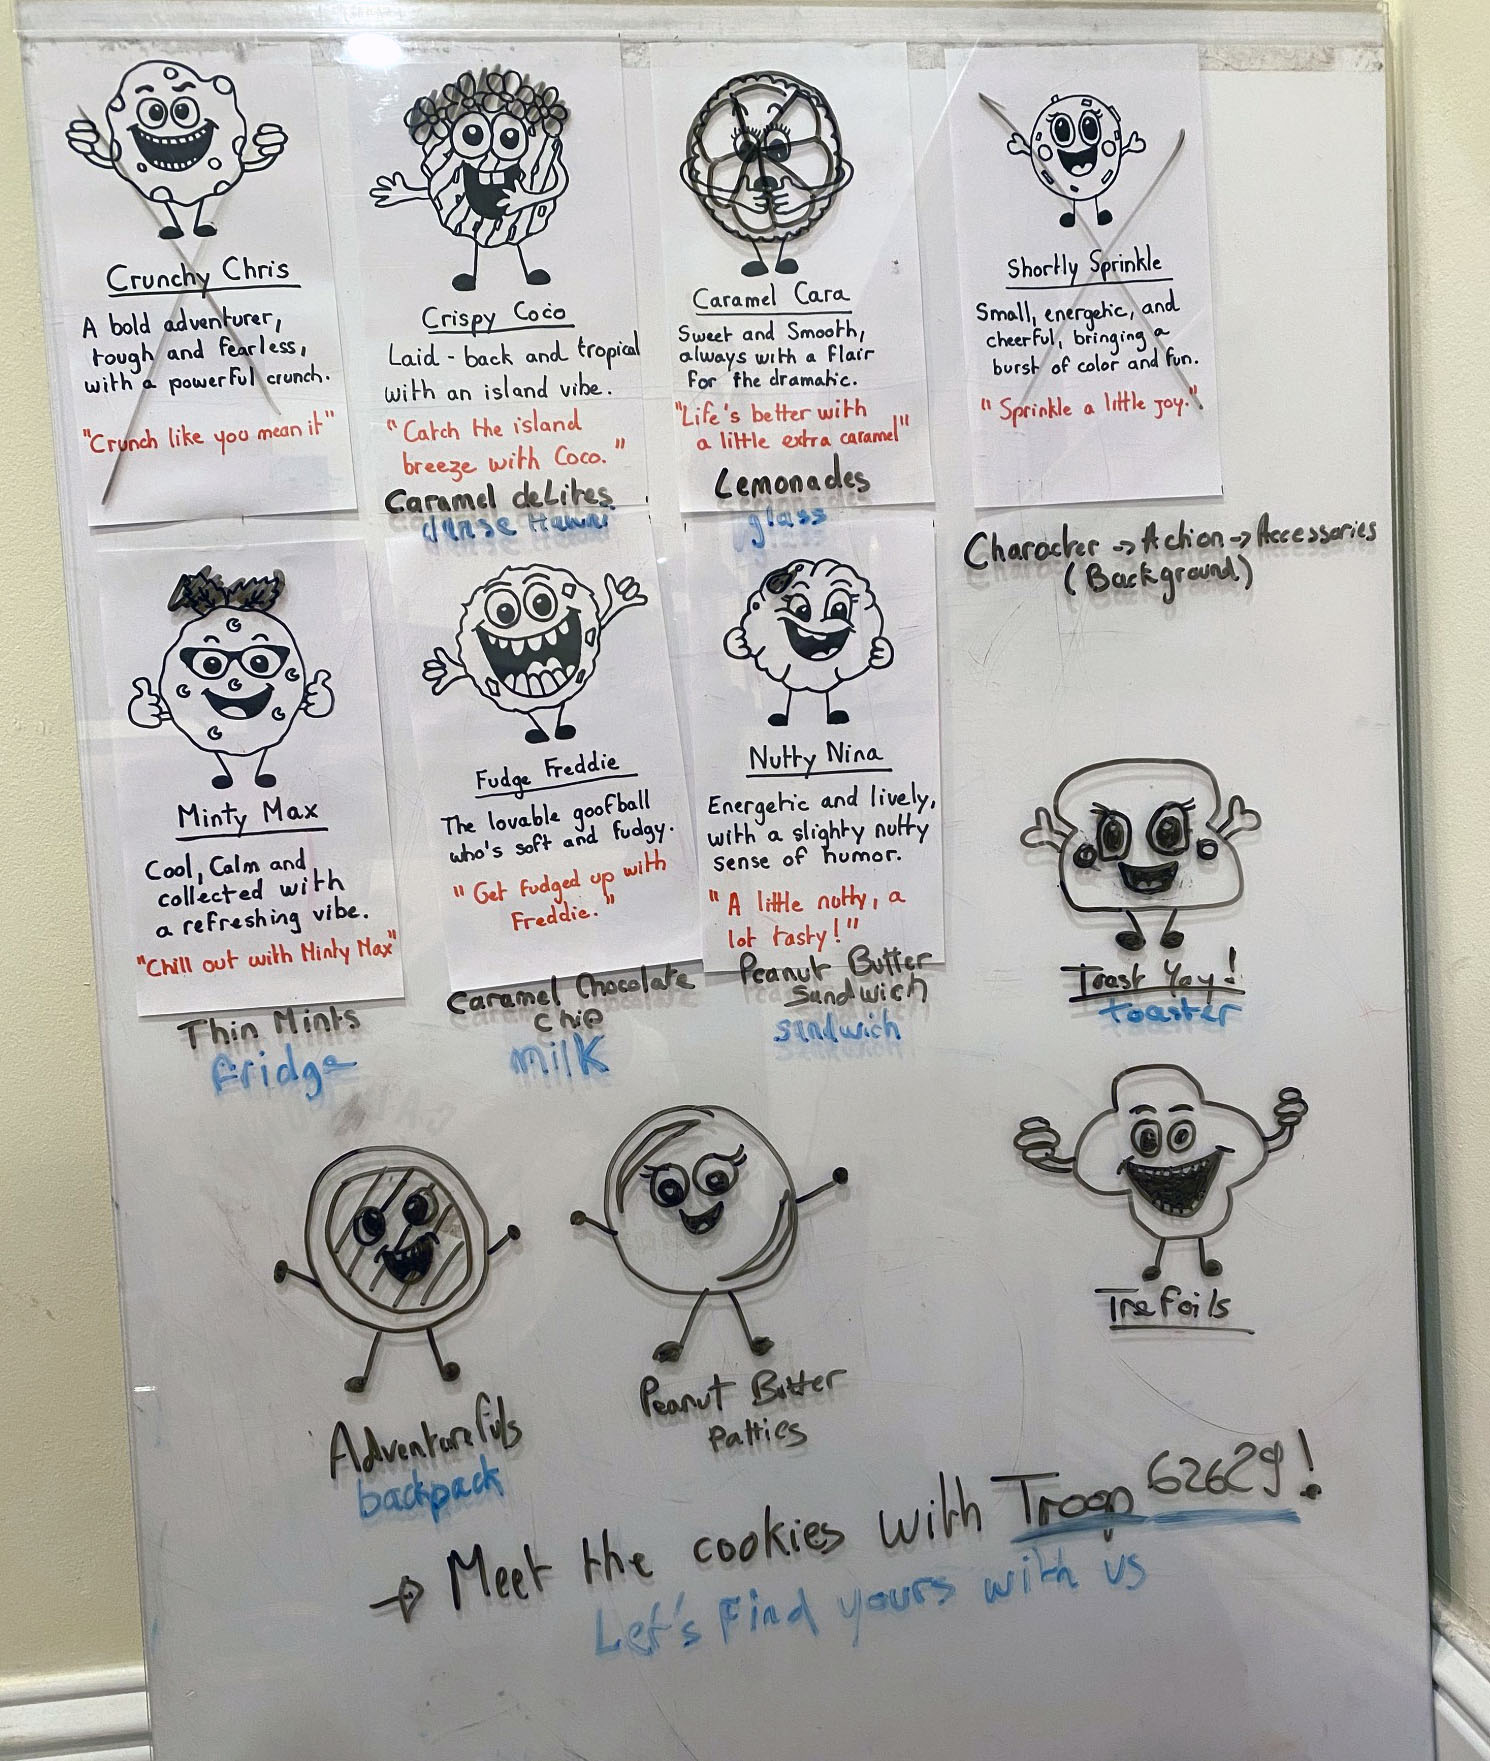 Crunchy Chris
A bold adventurer,
rough and fearless,
with a powerful crunch.
"Crunch like you mean it"
Crispy Coco
Laid - back and tropical
with an island vibe.
"Catch the island
breeze with Coco."
Caramel deLites
Caramel Cara
Sweet and Smooth,
always with a flair
for the dramatic.
"Life's better with
a little extra caramel"
Lemonades
glass
Shortly Sprinkle
Small, energetic, and
cheerful, bringing a
burst of color and fun.
"Sprinkle a little joy."
Character → Action → Accessories
(Background)
Minty Max
Cool, Calm and
collected with
a refreshing vibe.
"Chill out with Minty Max"
Thin Mints
fridge
Fudge Freddie
The lovable goofball
who's soft and fudgy.
"Get fudged up with
Freddie."
Caramel Chocolate
chip
milk
Nutty Nina
Energetic and lively,
with a slighty nutty
sense of humor.
"A little nutty, a
lot tasty!"
Peanut Butter
Sandwich
sandwich
Toast Yay!
toaster
Trefoils
Adventurefuls
backpack
Peanut Butter
Patties
→ Meet the cookies with Troop 62629!
Let's Find yours with us